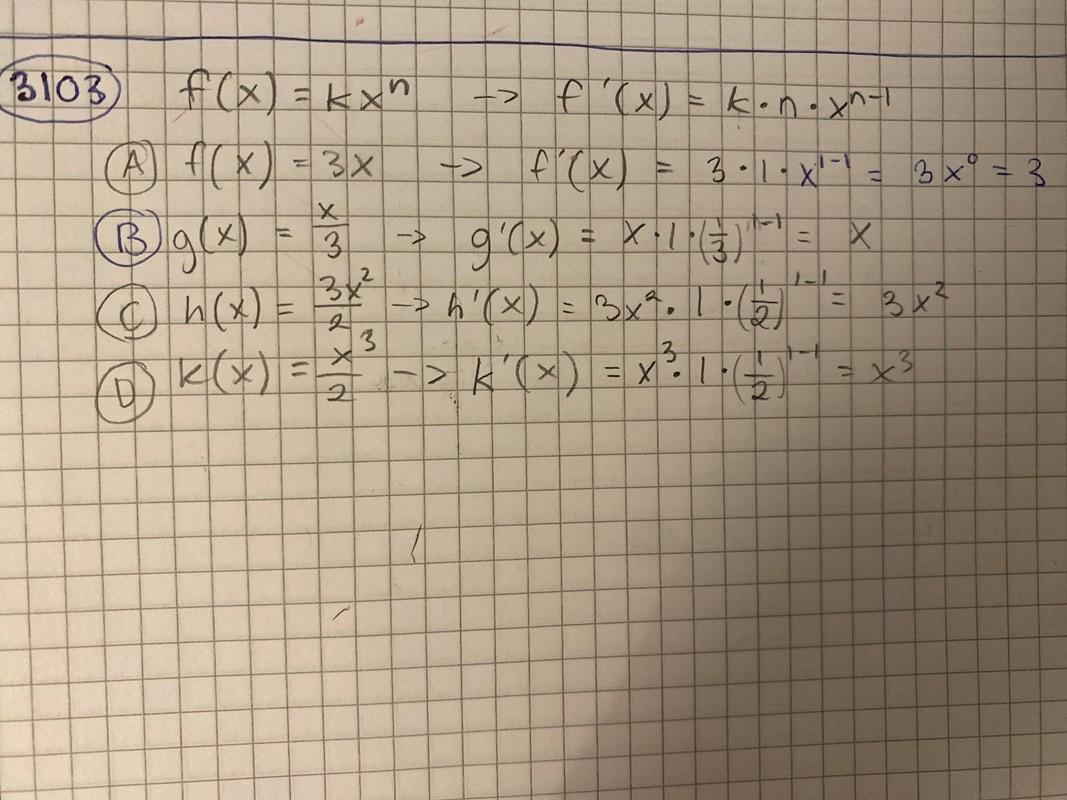 3103 f(x) = kxⁿ -> f'(x) = k·n·xⁿ⁻¹
A f(x) = 3x -> f'(x) = 3·1·x¹⁻¹ = 3x⁰ = 3
B g(x) = x/3 -> g'(x) = x·1·(1/3)¹⁻¹ = x
C h(x) = 3x²/2 -> h'(x) = 3x²·1·(1/2)¹⁻¹ = 3x²
D k(x) = x³/2 -> k'(x) = x³·1·(1/2)¹⁻¹ = x³